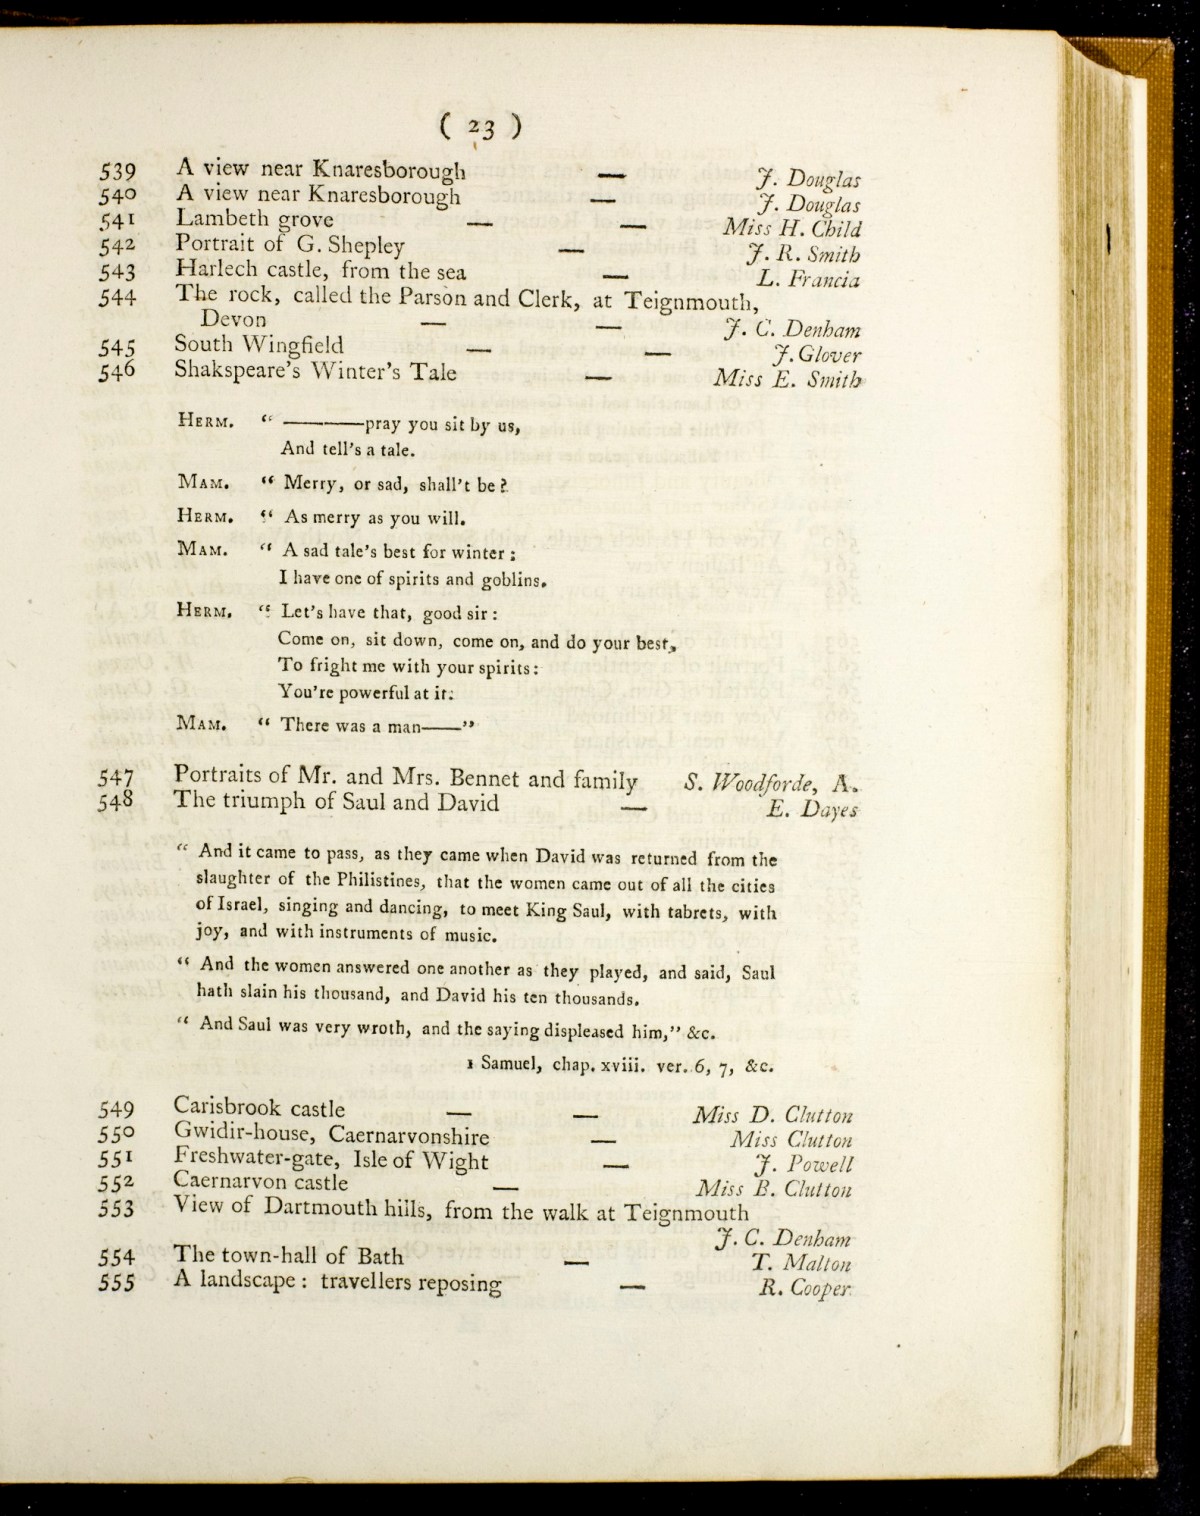 ( 23 )
539 A view near Knaresborough — J. Douglas
540 A view near Knaresborough — J. Douglas
541 Lambeth grove — — Miss H. Child
542 Portrait of G. Shepley — J. R. Smith
543 Harlech castle, from the sea — L. Francia
544 The rock, called the Parson and Clerk, at Teignmouth,
Devon — — J. C. Denham
545 South Wingfield — — J. Glover
546 Shakspeare's Winter's Tale — Miss E. Smith
HERM. “ ———pray you sit by us,
And tell's a tale.
MAM. “ Merry, or sad, shall't be?
HERM. “ As merry as you will.
MAM. “ A sad tale's best for winter:
I have one of spirits and goblins.
HERM. “ Let's have that, good sir:
Come on, sit down, come on, and do your best,
To fright me with your spirits:
You're powerful at it:
MAM. “ There was a man——”
547 Portraits of Mr. and Mrs. Bennet and family S. Woodforde, A.
548 The triumph of Saul and David — E. Dayes
“ And it came to pass, as they came when David was returned from the
slaughter of the Philistines, that the women came out of all the cities
of Israel, singing and dancing, to meet King Saul, with tabrets, with
joy, and with instruments of music.
“ And the women answered one another as they played, and said, Saul
hath slain his thousand, and David his ten thousands.
“ And Saul was very wroth, and the saying displeased him,” &c.
1 Samuel, chap. xviii. ver. 6, 7, &c.
549 Carisbrook castle — — Miss D. Clutton
550 Gwidir-house, Caernarvonshire — Miss Clutton
551 Freshwater-gate, Isle of Wight — J. Powell
552 Caernarvon castle — Miss B. Clutton
553 View of Dartmouth hills, from the walk at Teignmouth
J. C. Denham
554 The town-hall of Bath — T. Malton
555 A landscape: travellers reposing — R. Cooper